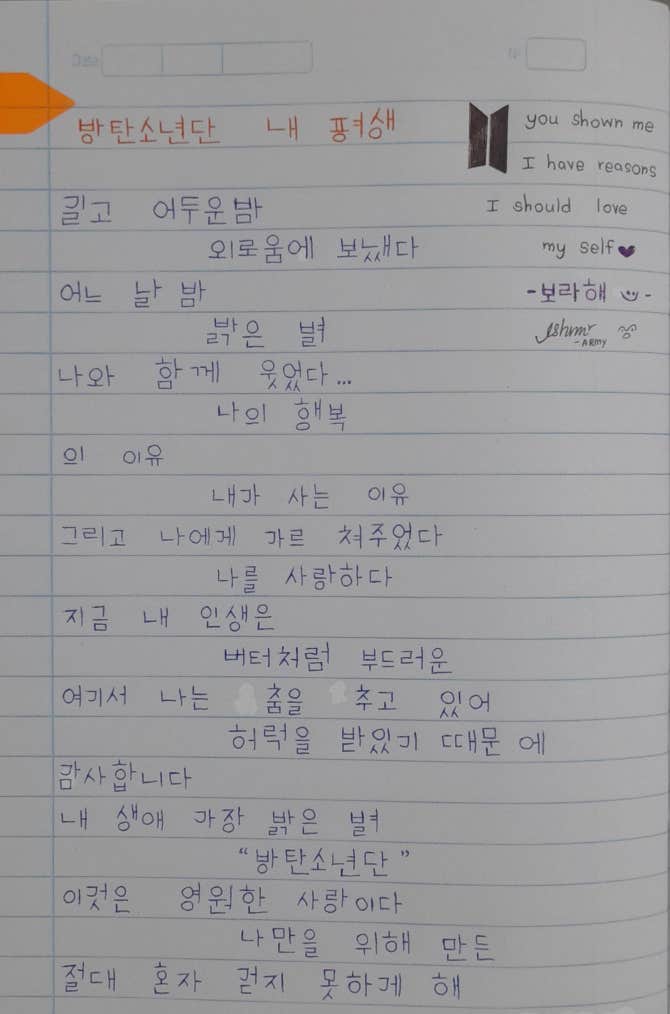 방탄소년단 내 평생
you shown me
I have reasons
I should love
my self
-보라해 -
-ARMY
길고 어두운밤
외로움에 보냈다
어느 날 밤
밝은 별
나와 함께 웃었다...
나의 행복
의 이유
내가 사는 이유
그리고 나에게 가르 쳐주었다
나를 사랑하다
지금 내 인생은
버터처럼 부드러운
여기서 나는 춤을 추고 있어
허락을 받있기 때문 에
감사합니다
내 생애 가장 밝은 별
“방탄소년단”
이것은 영원한 사랑이다
나만을 위해 만든
절대 혼자 걷지 못하게 해